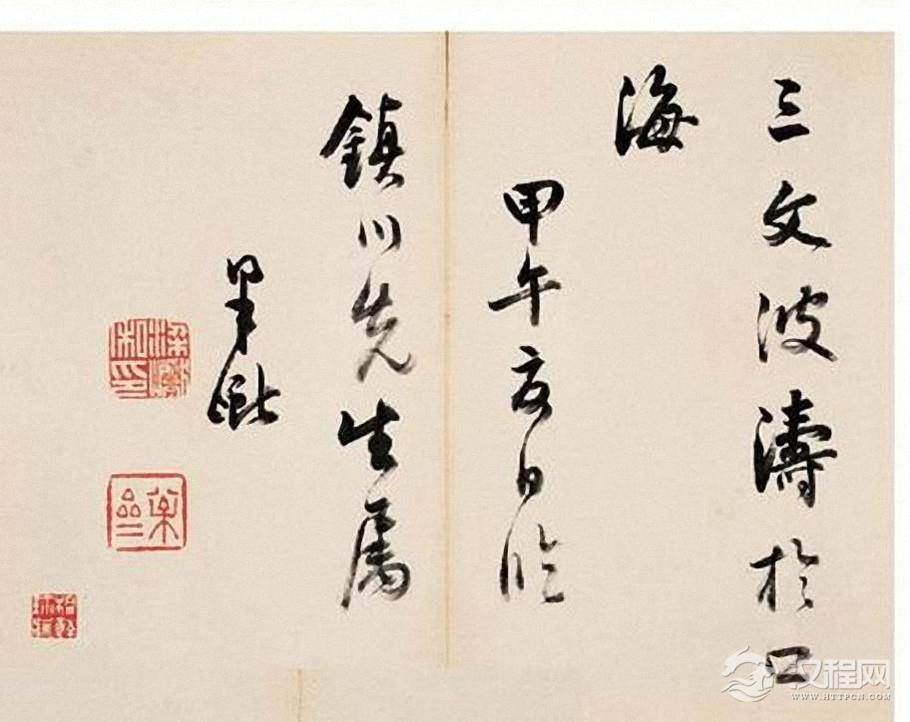 三文波濤於口
海
甲午夏日臨
鎮川先生属
汉程网
WWW.HTTPCN.COM